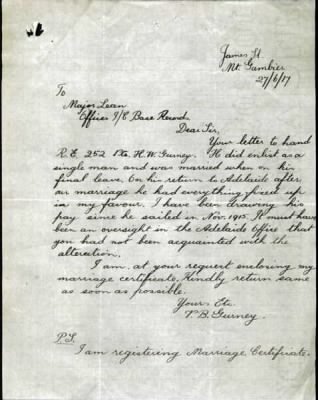 James St
Mt Gambier
27/6/17
To
Major Lean
Officer I/C Base Records
Dear Sir,
Your letter to hand
R.E. 252 Pte. H.W. Gurney. He did enlist as a
single man and was married when on his
final leave. On his return to Adelaide after
our marriage he had everything fixed up
in my favour. I have been drawing his
pay since he sailed in Nov. 1915. It must have
been an oversight in the Adelaide Office that
you had not been acquainted with the
alteration.
I am at your request enclosing my
marriage certificate. Kindly return same
as soon as possible.
Yours Etc.
V. B. Gurney.
P.S.
I am registering Marriage Certificate.